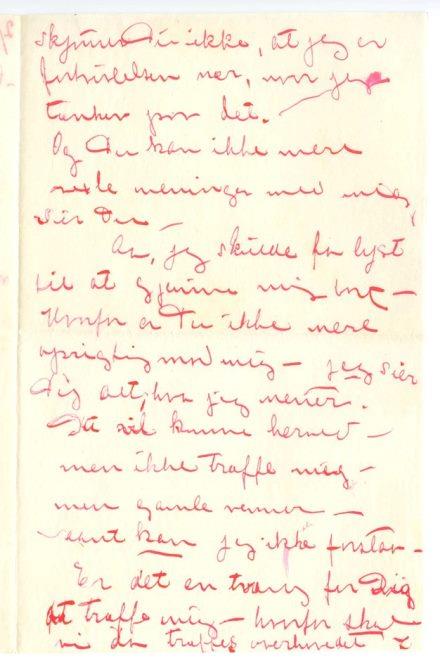 skjønner Du ikke, at jeg er
fortvivlelsen nær, naar jeg
tænker paa det.
Og Du kan ikke mere
vexle meninger med mig,
sier Du —
Aa, jeg skulde faa lyst
til at gjæmme mig bort —
Hvorfor er Du ikke mere
oprigtig mod mig — jeg sier
Dig alt, hva jeg mener.
Du vil komme herned —
men ikke træffe mig —
men gamle venner —
saant kan jeg ikke forstaa —
Er det en tvang for Dig
at træffe mig — hvorfor skal
vi da træffes overhovedet